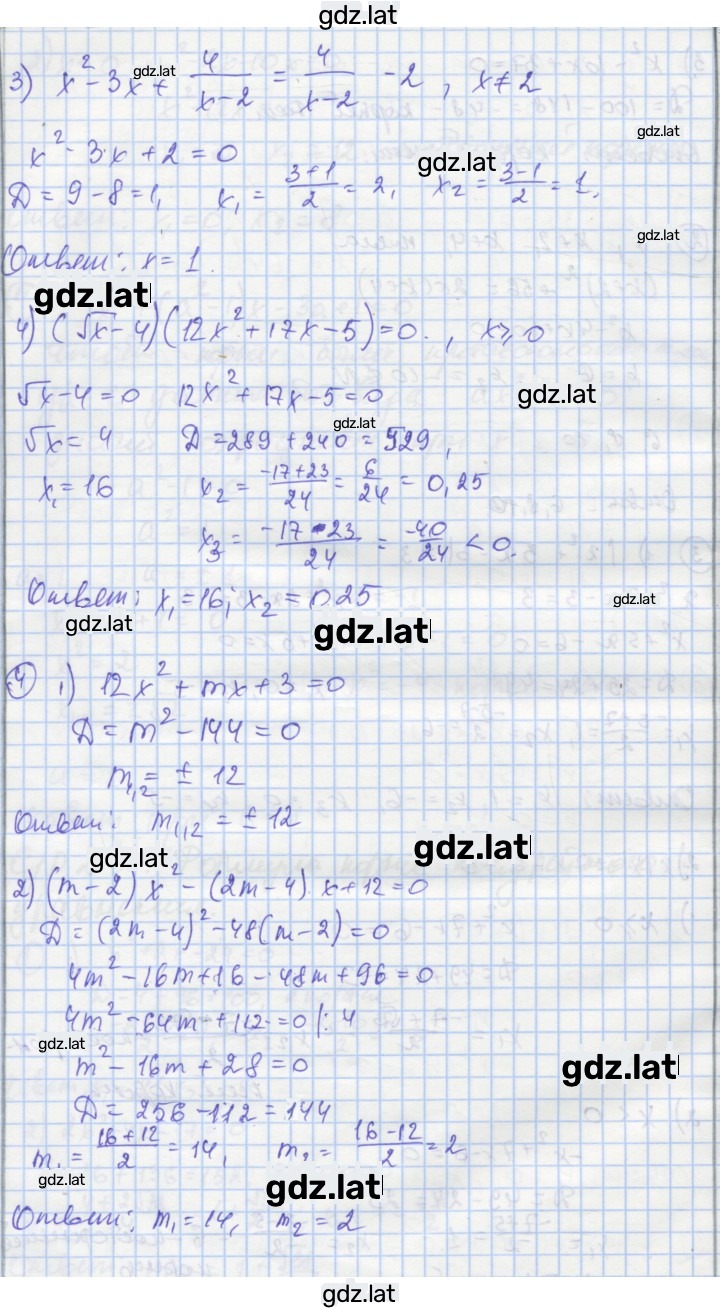 gdz.lat
3) x² - 3x + 4/(x-2) = 4/(x-2) - 2, x ≠ 2
gdz.lat
gdz.lat
x² - 3x + 2 = 0
gdz.lat
D = 9 - 8 = 1, x₁ = (3+1)/2 = 2, x₂ = (3-1)/2 = 1,
gdz.lat
Ответ: x = 1.
gdz.lat
4) (√x - 4)(12x² + 17x - 5) = 0. , x ≥ 0
√x - 4 = 0 12x² + 17x - 5 = 0
gdz.lat
gdz.lat
√x = 4 D = 289 + 240 = 529,
x₁ = 16 x₂ = (-17+23)/24 = 6/24 = 0,25
x₃ = (-17-23)/24 = -40/24 < 0.
Ответ: x₁ = 16; x₂ = 0.25
gdz.lat
gdz.lat
gdz.lat
④ 1) 12x² + mx + 3 = 0
D = m² - 144 = 0
m₁,₂ = ± 12
Ответ: m₁,₂ = ± 12
gdz.lat
gdz.lat
2) (m - 2) x² - (2m - 4) x + 12 = 0
D = (2m - 4)² - 48(m - 2) = 0
4m² - 16m + 16 - 48m + 96 = 0
4m² - 64m + 112 = 0 |: 4
gdz.lat
m² - 16m + 28 = 0
gdz.lat
D = 256 - 112 = 144
m₁ = (16+12)/2 = 14, m₂ = (16-12)/2 = 2
gdz.lat
gdz.lat
Ответ: m₁ = 14, m₂ = 2
gdz.lat